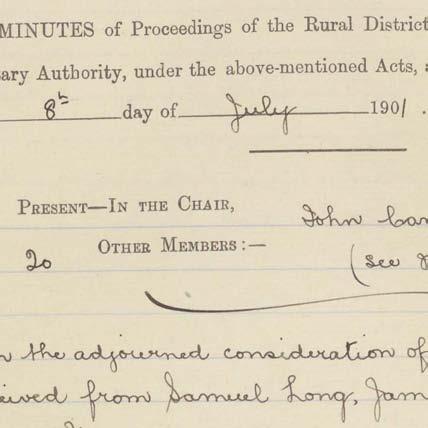 MINUTES of Proceedings of the Rural District
ary Authority, under the above-mentioned Acts, a
8th day of July 1901.
PRESENT—IN THE CHAIR, John Can
20 OTHER MEMBERS:— (see
the adjourned consideration of
eived from Samuel Long, Jam